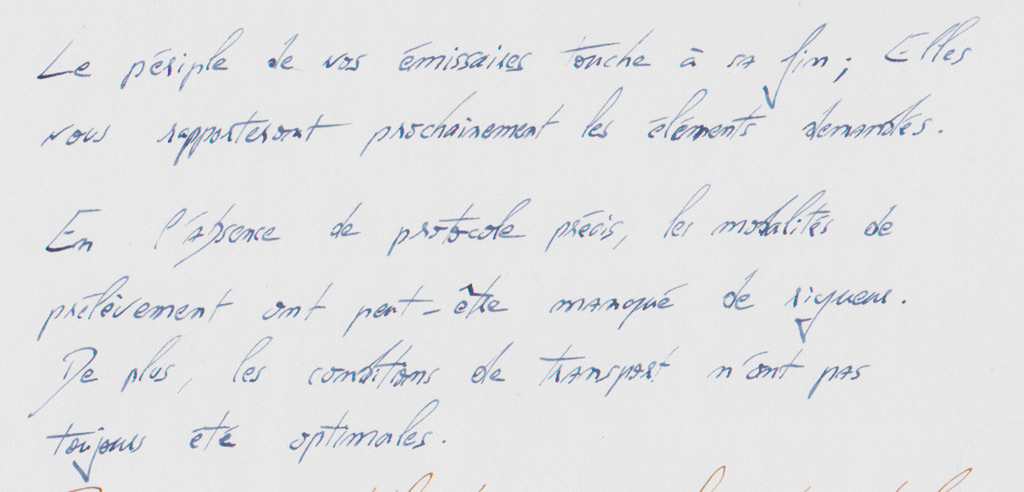 Le périple de vos émissaires touche à sa fin ; Elles
vous rapporteront prochainement les éléments demandés.
En l'absence de protocole précis, les modalités de
prélèvement ont peut-être manqué de rigueur.
De plus, les conditions de transport n'ont pas
toujours été optimales.